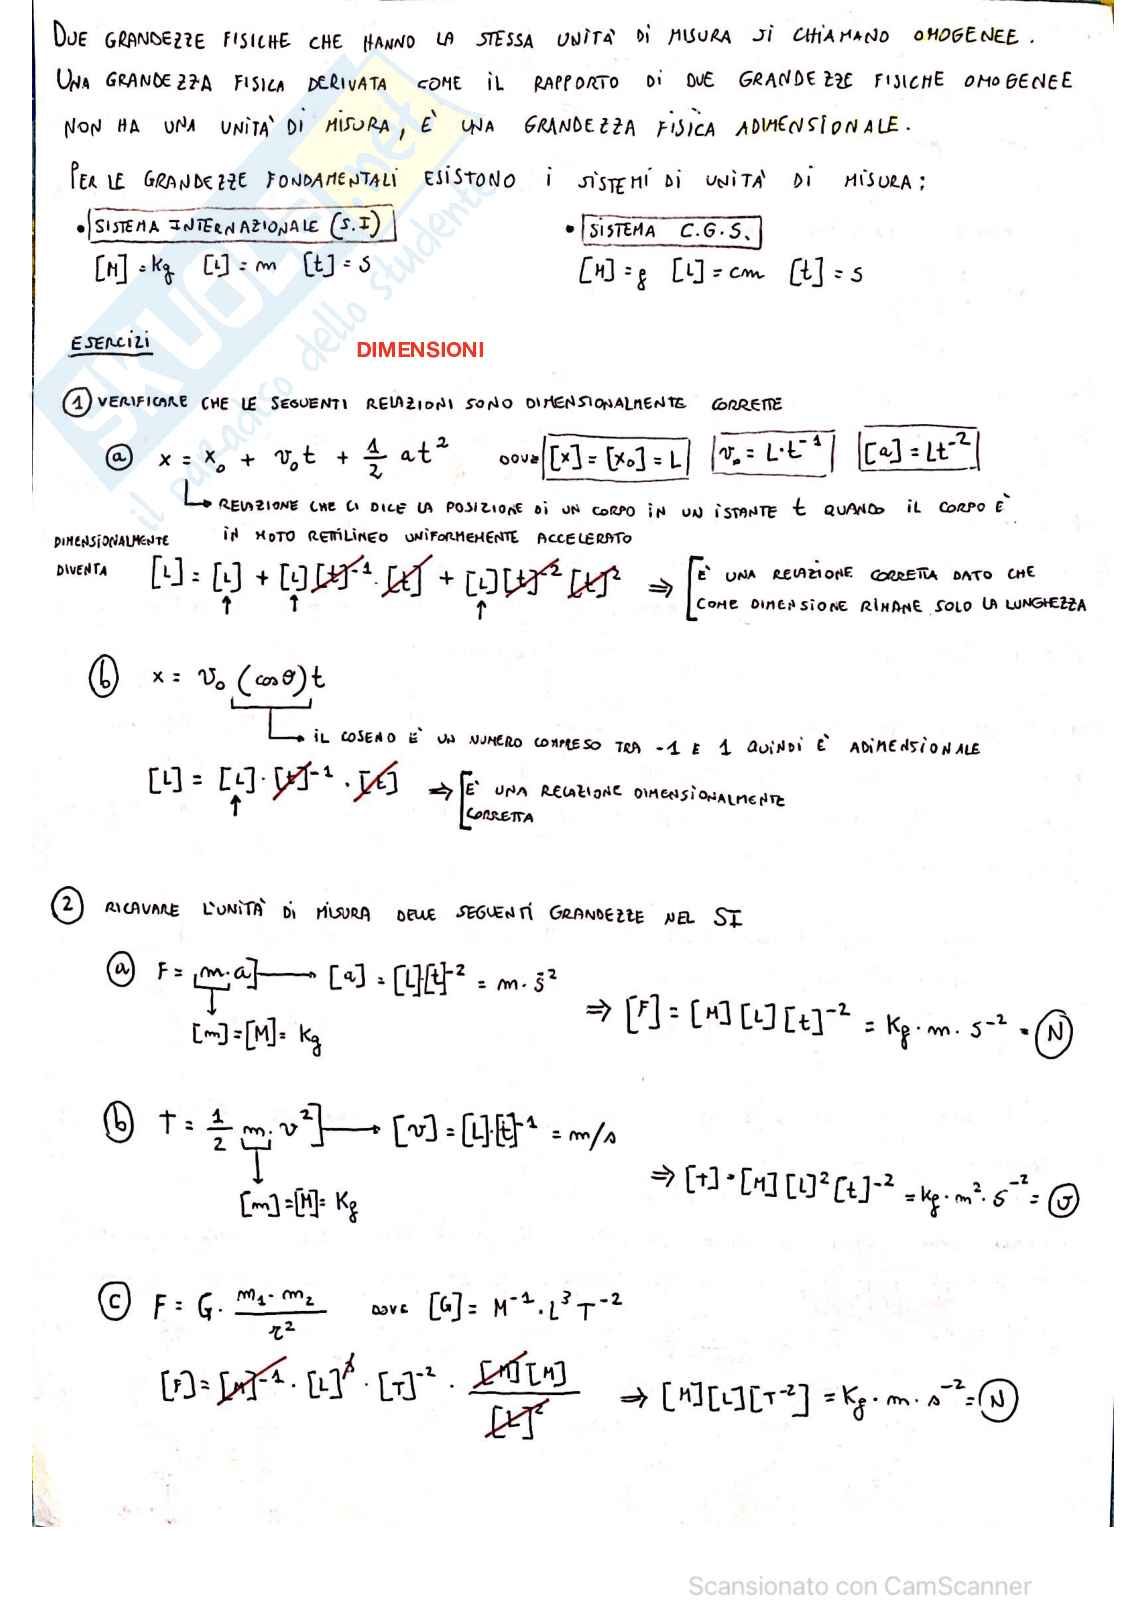 DUE GRANDEZZE FISICHE CHE HANNO LA STESSA UNITÀ DI MISURA SI CHIAMANO OMOGENEE.
UNA GRANDEZZA FISICA DERIVATA COME IL RAPPORTO DI DUE GRANDEZZE FISICHE OMOGENEE
NON HA UNA UNITÀ DI MISURA, È UNA GRANDEZZA FISICA ADIMENSIONALE.
PER LE GRANDEZZE FONDAMENTALI ESISTONO I SISTEMI DI UNITÀ DI MISURA:
• SISTEMA INTERNAZIONALE (S.I) • SISTEMA C.G.S.
[M] = Kg [L] = m [t] = s [M] = g [L] = cm [t] = s
ESERCIZI DIMENSIONI
① VERIFICARE CHE LE SEGUENTI RELAZIONI SONO DIMENSIONALMENTE CORRETTE
ⓐ x = x₀ + v₀t + 1/2 at² DOVE [x] = [x₀] = L v₀ = L·t⁻¹ [a] = Lt⁻²
RELAZIONE CHE CI DICE LA POSIZIONE DI UN CORPO IN UN ISTANTE t QUANDO IL CORPO È
IN MOTO RETTILINEO UNIFORMEMENTE ACCELERATO
DIMENSIONALMENTE
DIVENTA [L] = [L] + [L][t]⁻¹·[t] + [L][t]⁻²[t]² ⇒ È UNA RELAZIONE CORRETTA DATO CHE
COME DIMENSIONE RIMANE SOLO LA LUNGHEZZA
ⓑ x = v₀ (cosθ)t
IL COSENO È UN NUMERO COMPRESO TRA -1 E 1 QUINDI È ADIMENSIONALE
[L] = [L]·[t]⁻¹·[t] ⇒ È UNA RELAZIONE DIMENSIONALMENTE
CORRETTA
② RICAVARE L'UNITÀ DI MISURA DELLE SEGUENTI GRANDEZZE NEL SI
ⓐ F = m·a → [a] = [L][t]⁻² = m·s⁻²
[m] = [M] = Kg ⇒ [F] = [M][L][t]⁻² = Kg·m·s⁻² = N
ⓑ T = 1/2 m·v² → [v] = [L]·[t]⁻¹ = m/s
[m] = [M] = Kg ⇒ [T] = [M][L]²[t]⁻² = Kg·m²·s⁻² = J
ⓒ F = G· m₁·m₂/r² DOVE [G] = M⁻¹·L³T⁻²
[F] = [M]⁻¹·[L]³·[T]⁻²·[M][M]/[L]² ⇒ [M][L][T⁻²] = Kg·m·s⁻² = N
SKUOLA.net
il paradiso dello studente
Scansionato con CamScanner